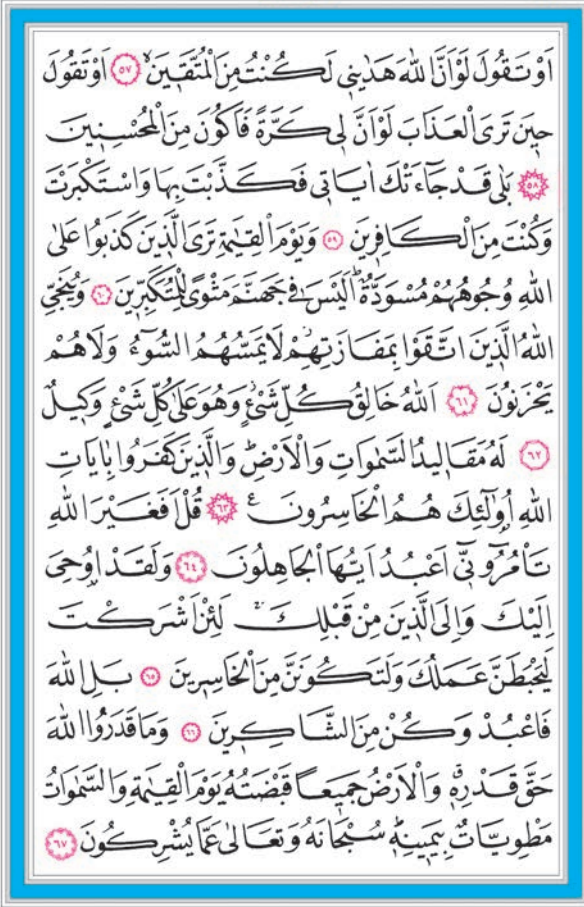 اَوْ تَقُولَ لَوْ اَنَّ اللّٰهَ هَدٰينٖى لَكُنْتُ مِنَ الْمُتَّقٖينَۙ ﴿٥٧﴾ اَوْ تَقُولَ
حٖينَ تَرَى الْعَذَابَ لَوْ اَنَّ لٖى كَرَّةً فَاَكُونَ مِنَ الْمُحْسِنٖينَ
﴿٥٨﴾ بَلٰى قَدْ جَٓاءَتْكَ اٰيَاتٖى فَكَذَّبْتَ بِهَا وَاسْتَكْبَرْتَ
وَكُنْتَ مِنَ الْكَافِرٖينَ ﴿٥٩﴾ وَيَوْمَ الْقِيٰمَةِ تَرَى الَّذٖينَ كَذَبُوا عَلَى
اللّٰهِ وُجُوهُهُمْ مُسْوَدَّةٌؕ اَلَيْسَ فٖى جَهَنَّمَ مَثْوًى لِلْمُتَكَبِّرٖينَ ﴿٦٠﴾ وَيُنَجِّى
اللّٰهُ الَّذٖينَ اتَّقَوْا بِمَفَازَتِهِمْؗ لَا يَمَسُّهُمُ السُّٓوءُ وَلَا هُمْ
يَحْزَنُونَ ﴿٦١﴾ اَللّٰهُ خَالِقُ كُلِّ شَىْءٍؗ وَهُوَ عَلٰى كُلِّ شَىْءٍ وَكٖيلٌ
﴿٦٢﴾ لَهُ مَقَالٖيدُ السَّمٰوَاتِ وَالْاَرْضِؕ وَالَّذٖينَ كَفَرُوا بِاٰيَاتِ
اللّٰهِ اُو۬لٰٓئِكَ هُمُ الْخَاسِرُونَ ع ﴿٦٣﴾ قُلْ اَفَغَيْرَ اللّٰهِ
تَاْمُرُٓونّٖٓى اَعْبُدُ اَيُّهَا الْجَاهِلُونَ ﴿٦٤﴾ وَلَقَدْ اُو۫حِىَ
اِلَيْكَ وَاِلَى الَّذٖينَ مِنْ قَبْلِكَۚ لَئِنْ اَشْرَكْتَ
لَيَحْبَطَنَّ عَمَلُكَ وَلَتَكُونَنَّ مِنَ الْخَاسِرٖينَ ﴿٦٥﴾ بَلِ اللّٰهَ
فَاعْبُدْ وَكُنْ مِنَ الشَّاكِرٖينَ ﴿٦٦﴾ وَمَا قَدَرُوا اللّٰهَ
حَقَّ قَدْرِهٖۗ وَالْاَرْضُ جَمٖيعاً قَبْضَتُهُ يَوْمَ الْقِيٰمَةِ وَالسَّمٰوَاتُ
مَطْوِيَّاتٌ بِيَمٖينِهٖؕ سُبْحَانَهُ وَتَعَالٰى عَمَّا يُشْرِكُونَ ﴿٦٧﴾